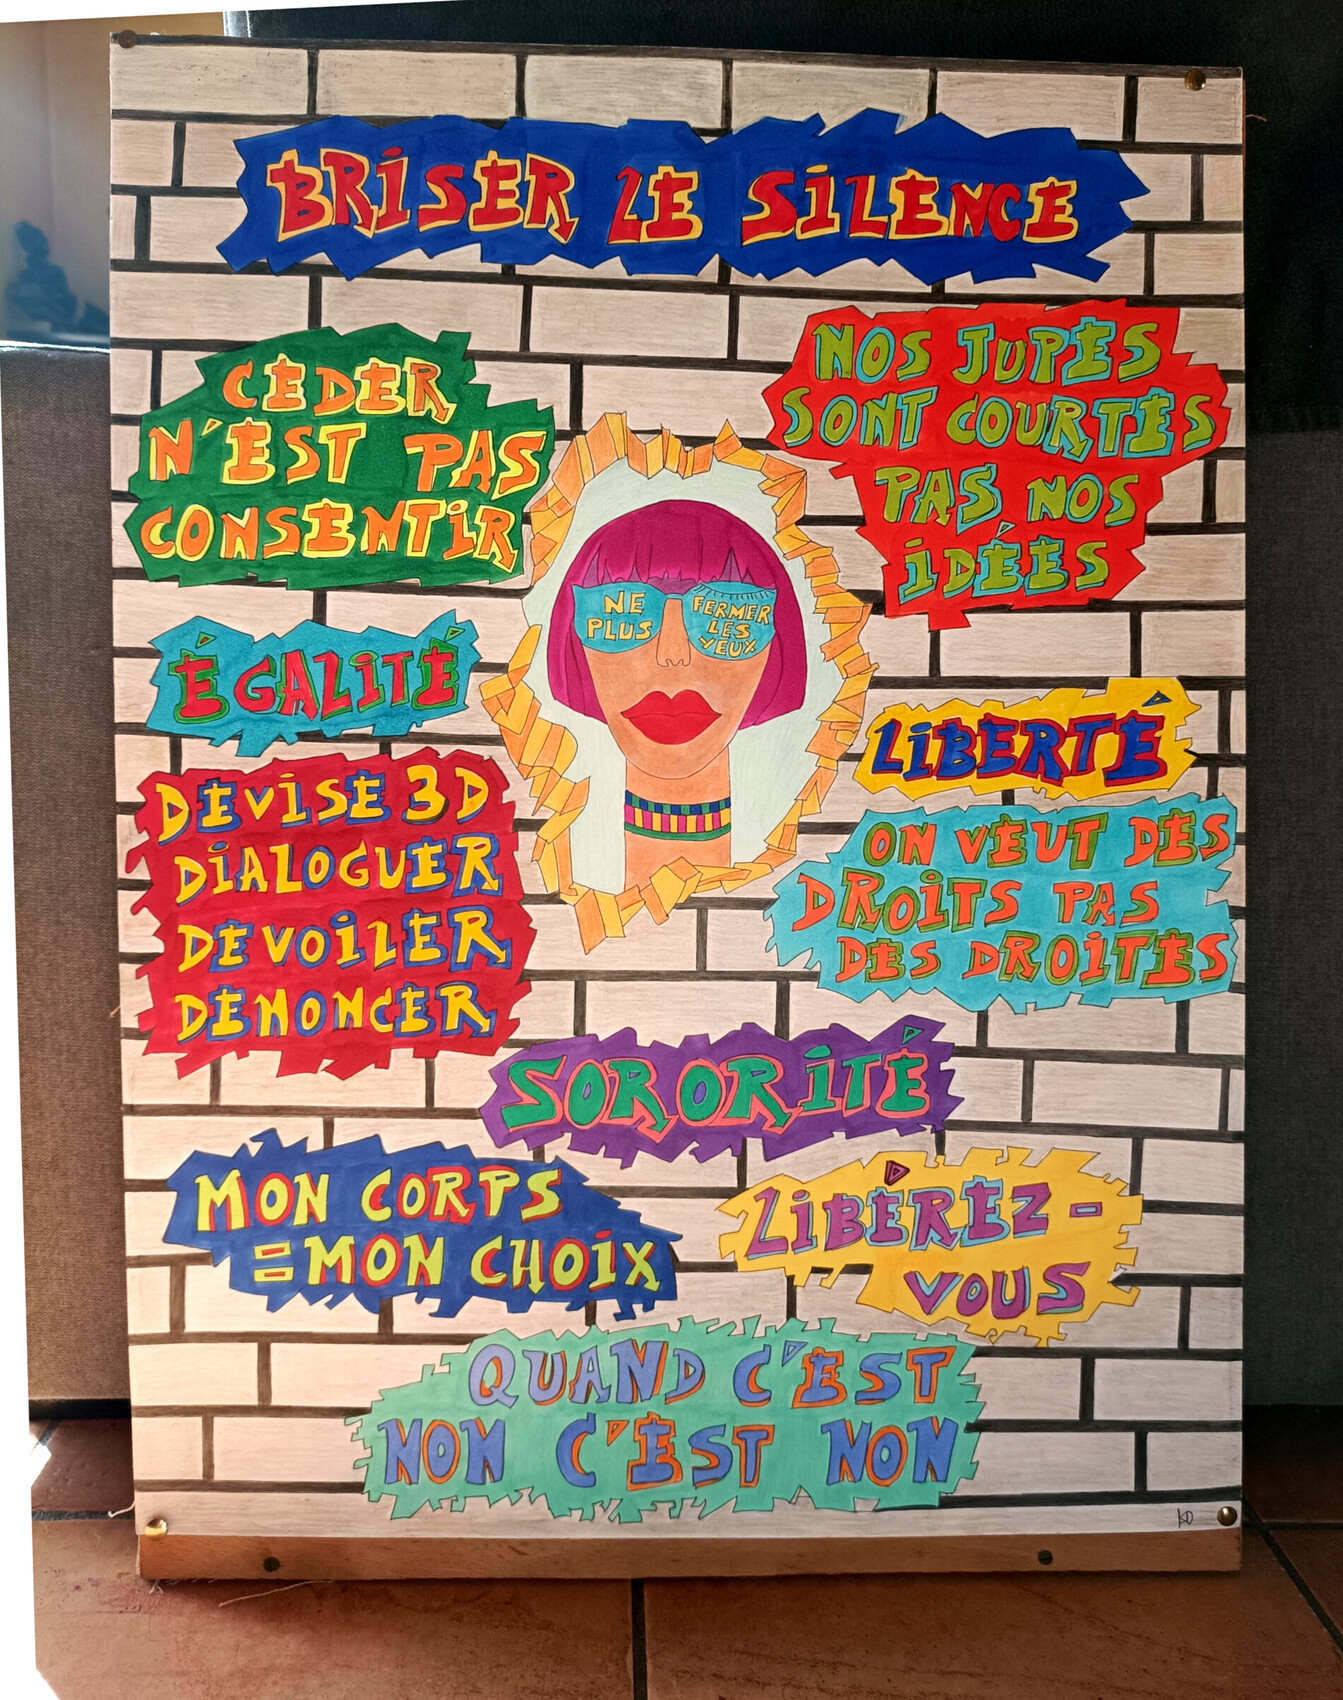 BRISER LE SILENCE
CEDER
N'EST PAS
CONSENTIR
NOS JUPES
SONT COURTES
PAS NOS
IDÉES
NE
PLUS
FERMER
LES
YEUX
ÉGALITÉ
LIBERTÉ
DEVISE 3D
DIALOGUER
DEVOILER
DENONCER
ON VEUT DES
DROITS PAS
DES DROITES
SORORITÉ
MON CORPS
=MON CHOIX
LIBÉREZ-
VOUS
QUAND C'EST
NON C'EST NON
KD